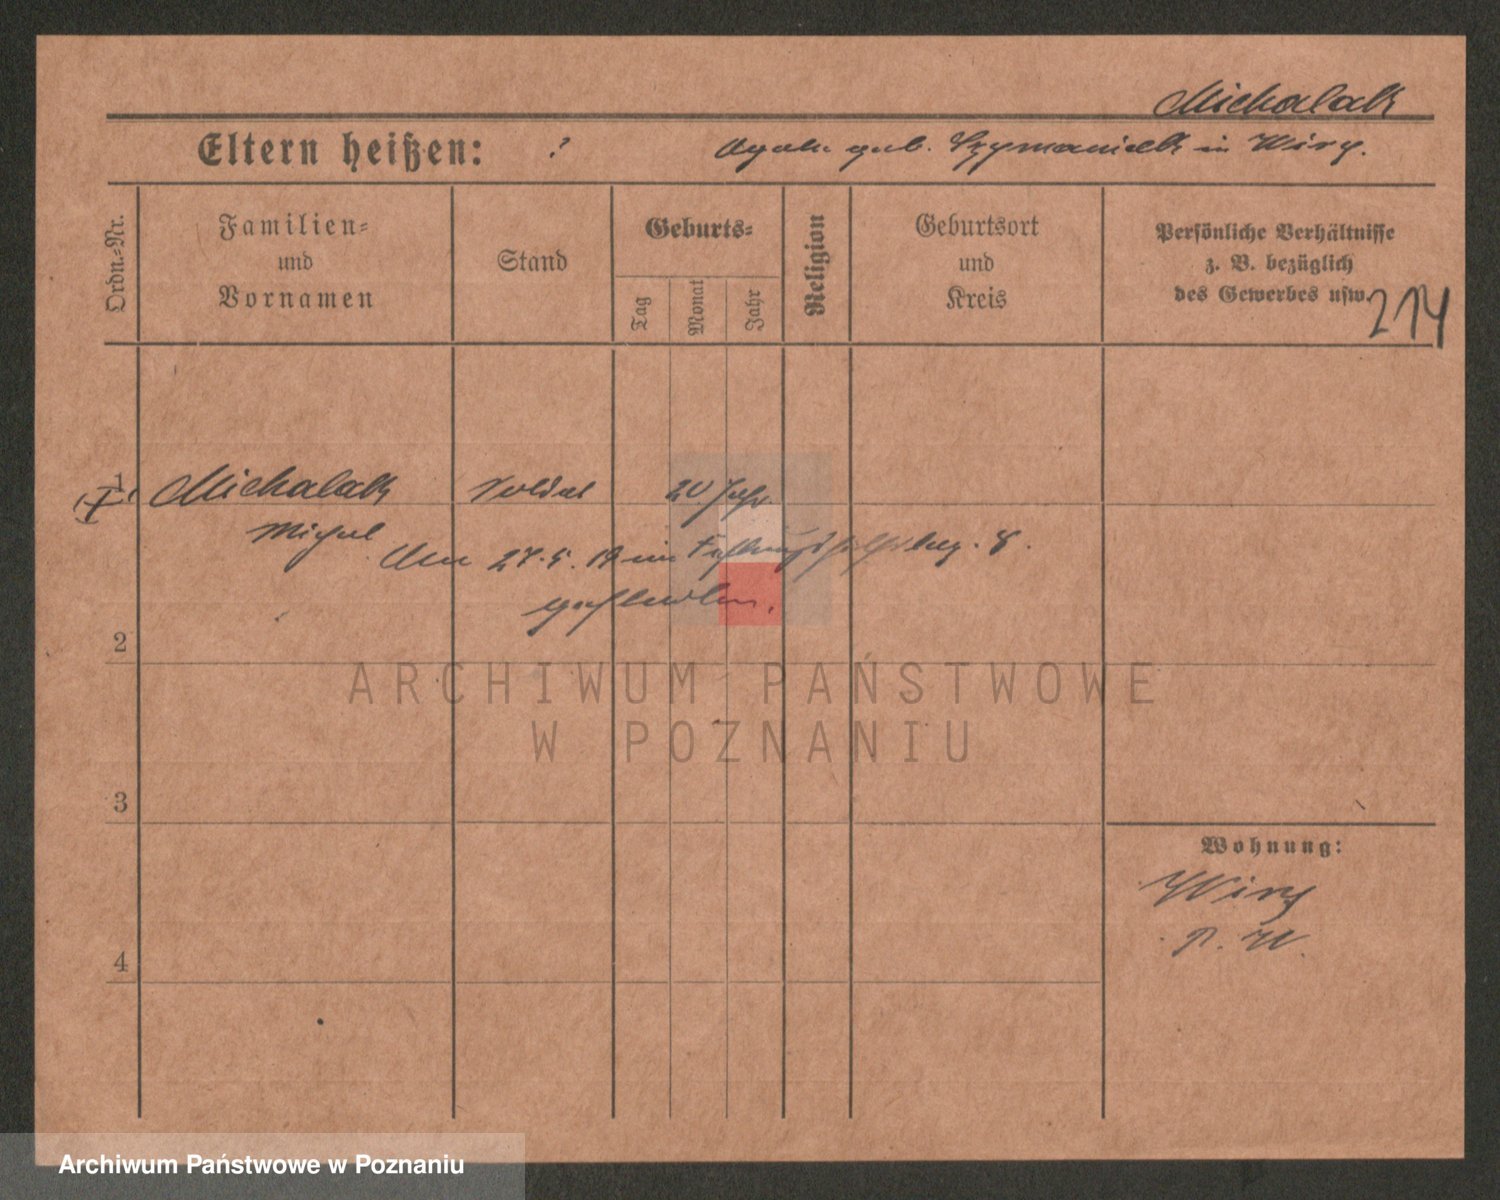 Michalak
Eltern heißen: ? geb. Szymaniak in Wiry.
Ordn.-Nr.
Familien-
und
Vornamen
Stand
Geburts-
Tag
Monat
Jahr
Religion
Geburtsort
und
Kreis
Persönliche Verhältnisse
z. B. bezüglich
des Gewerbes usw.
214
1 Michalak Soldat 20 Jahr
Am 27.5.19 im 8.
2
3
4
Wohnung:
Wiry
ARCHIWUM PAŃSTWOWE
W POZNANIU
Archiwum Państwowe w Poznaniu